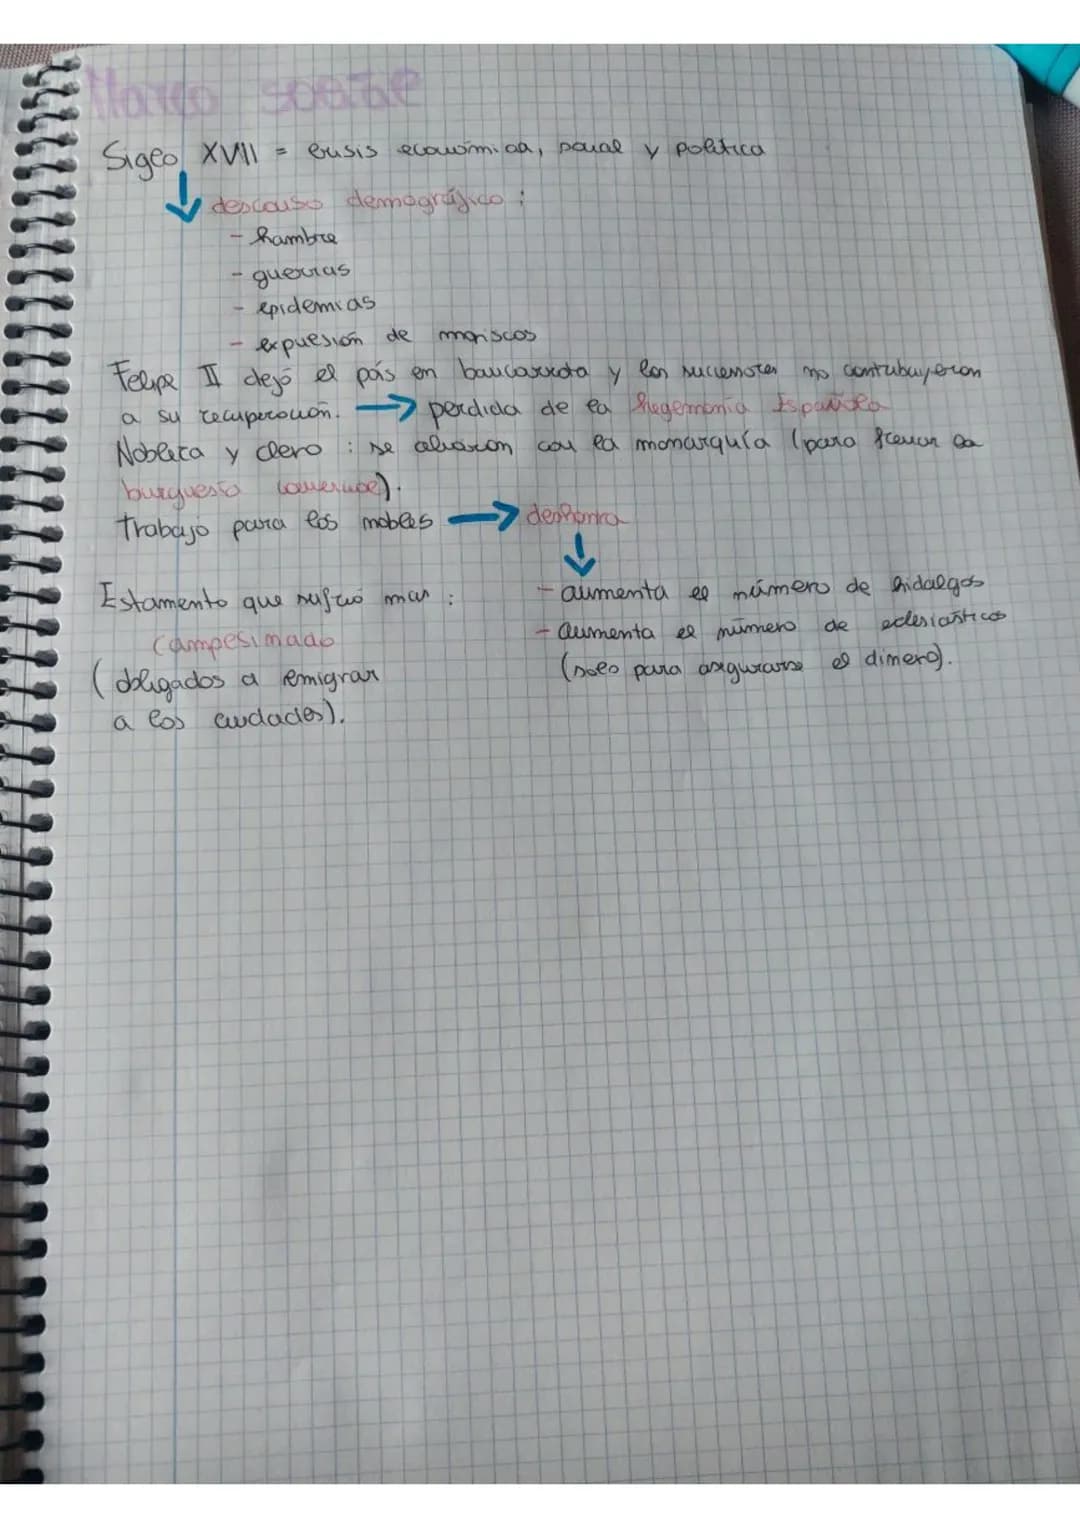 Marco social
Siglo XVII = crisis económica, social y política
descenso demográfico :
- hambre
- guerras
- epidemias
- expulsión de moriscos
Felipe II dejó el país en bancarrota y los sucesores no contribuyeron
a su recuperación. → perdida de la hegemonía Española
Nobleza y clero : se aliaron con la monarquía (para frenar la
burguesía comercial).
Trabajo para los nobles → deshonra
Estamento que sufrió mas :
Campesinado
(obligados a emigrar
a las ciudades).
- aumenta el número de hidalgos
- aumenta el número de eclesiásticos
(solo para asegurarse el dinero).